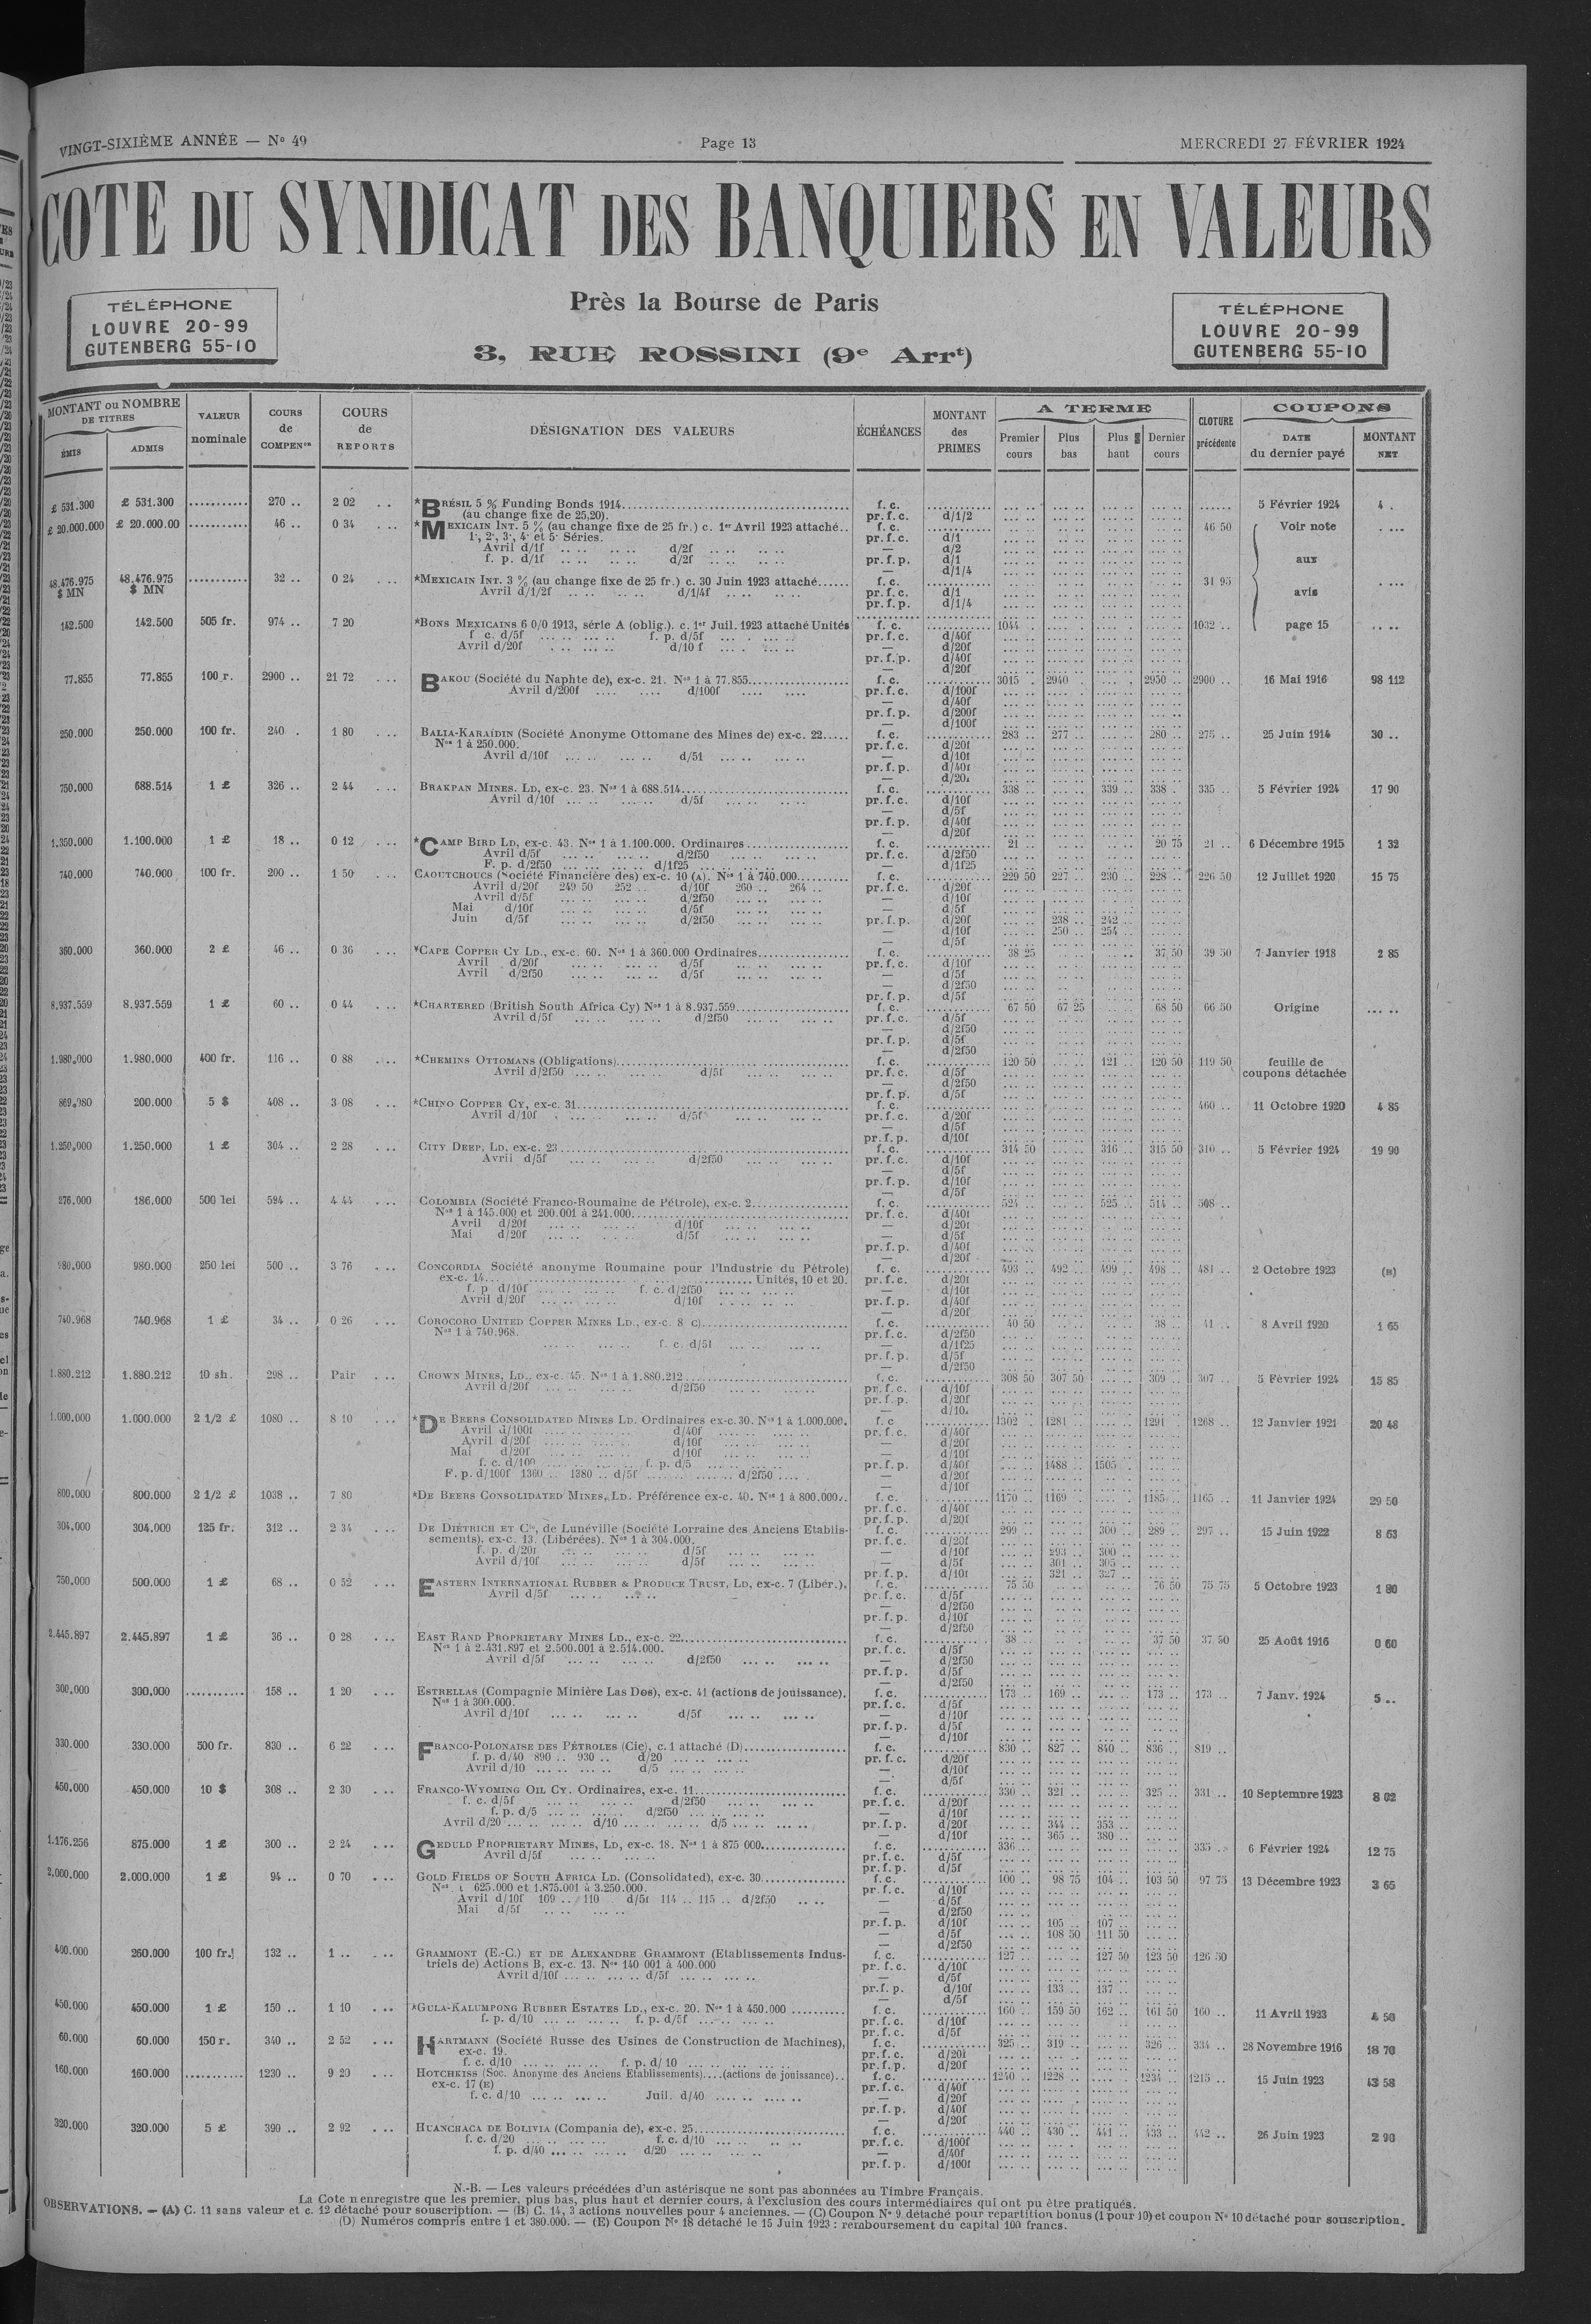 VINGT-SIXIÈME ANNÉE — N° 49
Page 13
MERCREDI 27 FÉVRIER 1924
COTE DU SYNDICAT DES BANQUIERS EN VALEURS
TÉLÉPHONE
LOUVRE 20-99
GUTENBERG 55-10
Près la Bourse de Paris
3, RUE ROSSINI (9e Arrt)
TÉLÉPHONE
LOUVRE 20-99
GUTENBERG 55-10
MONTANT ou NOMBRE DE TITRES
ÉMIS
ADMIS
VALEUR nominale
COURS de COMPENon
COURS de REPORTS
DÉSIGNATION DES VALEURS
ÉCHÉANCES
MONTANT des PRIMES
A TERME
Premier cours
Plus bas
Plus haut
Dernier cours
CLOTURE précédente
COUPONS
DATE du dernier payé
MONTANT NET
£ 531.300 £ 531.300 270 .. 2 02 *BRÉSIL 5 % Funding Bonds 1914 f. c. 5 Février 1924 4 .
(au change fixe de 25,20). pr. f. c. d/1/2
£ 20.000.000 £ 20.000.00 46 .. 0 34 *MEXICAIN INT. 5 % (au change fixe de 25 fr.) c. 1er Avril 1923 attaché.. f. c. 46 50 Voir note
1·, 2·, 3·, 4· et 5· Séries. pr. f. c. d/1
Avril d/1f d/2f — d/2
f. p. d/1f d/2f pr. f. p. d/1 aux
— d/1/4
48.476.975 $ MN 48.476.975 $ MN 32 .. 0 24 *MEXICAIN INT. 3 % (au change fixe de 25 fr.) c. 30 Juin 1923 attaché f. c. 31 95
Avril d/1/2f d/1/4f pr. f. c. d/1 avis
pr. f. p. d/1/4
142.500 142.500 505 fr. 974 .. 7 20 *BONS MEXICAINS 6 0/0 1913, série A (oblig.). c. 1er Juil. 1923 attaché Unités f. c. 1044 1032 .. page 15
f c. d/5f f. p. d/5f pr. f. c. d/40f
Avril d/20f d/10 f — d/20f
pr. f. p. d/40f
— d/20f
77.855 77.855 100 r. 2900 .. 21 72 BAKOU (Société du Naphte de), ex-c. 21. Nos 1 à 77.855 f. c. 3015 2940 2950 2900 .. 16 Mai 1916 98 112
Avril d/200f d/100f pr. f. c. d/100f
— d/40f
pr. f. p. d/200f
— d/100f
250.000 250.000 100 fr. 240 . 1 80 BALIA-KARAÏDIN (Société Anonyme Ottomane des Mines de) ex-c. 22 f. c. 283 277 280 275 .. 25 Juin 1914 30 ..
Nos 1 à 250.000. pr. f. c. d/20f
Avril d/10f d/5f — d/10f
pr. f. p. d/40f
— d/20f
750.000 688.514 1 £ 326 .. 2 44 BRAKPAN MINES. LD, ex-c. 23. Nos 1 à 688.514 f. c. 338 339 338 335 .. 5 Février 1924 17 90
Avril d/10f d/5f pr. f. c. d/10f
— d/5f
pr. f. p. d/40f
— d/20f
1.350.000 1.100.000 1 £ 18 .. 0 12 *CAMP BIRD LD, ex-c. 43. Nos 1 à 1.100.000. Ordinaires f. c. 21 20 75 21 .. 6 Décembre 1915 1 32
Avril d/5f d/2f50 pr. f. c. d/2f50
F. p. d/2f50 d/1f25 — d/1f25
740.000 740.000 100 fr. 200 .. 1 50 CAOUTCHOUCS (Société Financière des) ex-c. 10 (A). Nos 1 à 740.000 f. c. 229 50 227 230 228 226 50 12 Juillet 1920 15 75
Avril d/20f 249 50 252 .. d/10f 260 .. 264 .. pr. f. c. d/20f
Avril d/5f d/2f50 — d/10f
Mai d/10f d/5f — d/5f
Juin d/5f d/2f50 pr. f. p. d/20f 238 242
— d/10f 250 254
— d/5f
360.000 360.000 2 £ 46 .. 0 36 *CAPE COPPER CY LD., ex-c. 60. Nos 1 à 360.000 Ordinaires f. c. 38 25 37 50 39 50 7 Janvier 1918 2 85
Avril d/20f d/5f pr. f. c. d/10f
Avril d/2f50 d/5f — d/5f
— d/2f50
pr. f. p. d/5f
8.937.559 8.937.559 1 £ 60 .. 0 44 *CHARTERED (British South Africa Cy) Nos 1 à 8.937.559 f. c. 67 50 67 25 68 50 66 50 Origine
Avril d/5f d/2f50 pr. f. c. d/5f
— d/2f50
pr. f. p. d/5f
— d/2f50
1.980.000 1.980.000 400 fr. 116 .. 0 88 *CHEMINS OTTOMANS (Obligations) f. c. 120 50 121 120 50 119 50 feuille de
Avril d/2f50 d/5f pr. f. c. d/5f coupons détachée
— d/2f50
pr. f. p. d/5f
869.980 200.000 5 $ 408 .. 3 08 *CHINO COPPER CY, ex-c. 31 f. c. 460 .. 11 Octobre 1920 4 85
Avril d/10f d/5f pr. f. c. d/20f
— d/5f
pr. f. p. d/10f
1.250.000 1.250.000 1 £ 304 .. 2 28 CITY DEEP, LD, ex-c. 23 f. c. 314 50 316 315 50 310 .. 5 Février 1924 19 90
Avril d/5f d/2f50 pr. f. c. d/10f
— d/5f
pr. f. p. d/10f
— d/5f
276.000 186.000 500 lei 594 .. 4 44 COLOMBIA (Société Franco-Roumaine de Pétrole), ex-c. 2 f. c. 524 525 514 508 ..
Nos 1 à 145.000 et 200.001 à 241.000 pr. f. c. d/40f
Avril d/20f d/10f — d/20f
Mai d/20f d/5f — d/5f
pr. f. p. d/40f
— d/20f
980.000 980.000 250 lei 500 .. 3 76 CONCORDIA Société anonyme Roumaine pour l'Industrie du Pétrole) f. c. 493 492 499 498 481 .. 2 Octobre 1923 (B)
ex-c. 14 Unités, 10 et 20. pr. f. c. d/20f
f. p d/10f f. c. d/2f50 — d/10f
Avril d/20f d/10f pr. f. p. d/40f
— d/20f
740.968 740.968 1 £ 34 .. 0 26 COROCORO UNITED COPPER MINES LD., ex-c. 8 c) f. c. 40 50 38 41 .. 8 Avril 1920 1 65
Nos 1 à 740.968. pr. f. c. d/2f50
f. c. d/5f — d/1f25
pr. f. p. d/5f
— d/2f50
1.880.212 1.880.212 10 sh. 298 .. Pair CROWN MINES, LD., ex-c. 45. Nos 1 à 1.880.212 f. c. 308 50 307 50 309 307 .. 5 Février 1924 15 85
Avril d/20f d/2f50 pr. f. c. d/10f
pr. f. p. d/20f
— d/10.
1.000.000 1.000.000 2 1/2 £ 1080 .. 8 10 *DE BEERS CONSOLIDATED MINES LD. Ordinaires ex-c. 30. Nos 1 à 1.000.000. f. c 1302 1281 1291 1268 .. 12 Janvier 1921 20 48
Avril d/100f d/40f pr. f. c. d/40f
Avril d/20f d/10f — d/20f
Mai d/20f d/10f — d/10f
f. c. d/100 f. p. d/5 pr. f. p. d/40f 1488 1505
F. p. d/100f 1360 .. 1380 .. d/5f d/2f50 — d/20f
— d/10f
800.000 800.000 2 1/2 £ 1038 .. 7 80 *DE BEERS CONSOLIDATED MINES, LD. Préférence ex-c. 40. Nos 1 à 800.000.. f. c. 1170 1169 1185 1165 .. 11 Janvier 1924 29 50
pr. f. c. d/40f
pr. f. p. d/20f
304.000 304.000 125 fr. 312 .. 2 34 DE DIÉTRICH ET Cie, de Lunéville (Société Lorraine des Anciens Etablis- f. c. 299 300 289 297 .. 15 Juin 1922 8 63
sements), ex-c. 13. (Libérées). Nos 1 à 304.000. pr. f. c. d/20f
f. p. d/20f d/5f — d/10f 293 300
Avril d/10f d/5f — d/5f 301 305
pr. f. p. d/10f 321 327
750.000 500.000 1 £ 68 .. 0 52 EASTERN INTERNATIONAL RUBBER & PRODUCE TRUST, LD, ex-c. 7 (Libér.). f. c. 75 50 76 50 75 75 5 Octobre 1923 1 80
Avril d/5f pr. f. c. d/5f
— d/2f50
pr. f. p. d/10f
— d/2f50
2.445.897 2.445.897 1 £ 36 .. 0 28 EAST RAND PROPRIETARY MINES LD., ex-c. 22 f. c. 38 37 50 37 50 25 Août 1916 0 60
Nos 1 à 2.431.897 et 2.500.001 à 2.514.000. pr. f. c. d/5f
Avril d/5f d/2f50 — d/2f50
pr. f. p. d/5f
— d/2f50
300.000 300.000 158 .. 1 20 ESTRELLAS (Compagnie Minière Las Dos), ex-c. 41 (actions de jouissance). f. c. 173 169 173 173 .. 7 Janv. 1924 5 ..
Nos 1 à 300.000. pr. f. c. d/5f
Avril d/10f d/5f — d/10f
pr. f. p. d/5f
— d/10f
330.000 330.000 500 fr. 830 .. 6 22 FRANCO-POLONAISE DES PÉTROLES (Cie), c. 1 attaché (D) f. c. 830 827 840 836 819 ..
f. p. d/40 890 .. 930 .. d/20 pr. f. c. d/20f
Avril d/10 d/5 — d/10f
— d/5f
450.000 450.000 10 $ 308 .. 2 30 FRANCO-WYOMING OIL CY. Ordinaires, ex-c. 11 f. c. 330 321 325 331 .. 10 Septembre 1923 8 02
f. c. d/5f d/2f50 pr. f. c. d/20f
f. p. d/5 d/2f50 — d/10f
Avril d/20 d/10 d/5 pr. f. p. d/20f 344 353
— d/10f 365 380
1.176.256 875.000 1 £ 300 .. 2 24 GEDULD PROPRIETARY MINES, LD, ex-c. 18. Nos 1 à 875 000 f. c. 336 335 .. 6 Février 1924 12 75
Avril d/5f pr. f. c. d/5f
pr. f. p. d/5f
2.000.000 2.000.000 1 £ 94 .. 0 70 GOLD FIELDS OF SOUTH AFRICA LD. (Consolidated), ex-c. 30 f. c. 100 98 75 104 103 50 97 75 13 Décembre 1923 3 65
Nos 1 625.000 et 1.875.001 à 3.250.000. pr. f. c. d/10f
Avril d/10f 109 .. 110 d/5f 114 .. 115 .. d/2f50 — d/5f
Mai d/5f — d/2f50
pr. f. p. d/10f 105 107
— d/5f 108 50 111 50
— d/2f50
400.000 260.000 100 fr. 132 .. 1 .. GRAMMONT (E.-C.) ET DE ALEXANDRE GRAMMONT (Etablissements Indus- f. c. 127 127 50 123 50 126 50
triels de) Actions B, ex-c. 13. Nos 140 001 à 400.000 pr. f. c. d/10f
Avril d/10f d/5f — d/5f
pr. f. p. d/10f 133 137
— d/5f
450.000 450.000 1 £ 150 .. 1 10 *GULA-KALUMPONG RUBBER ESTATES LD., ex-c. 20. Nos 1 à 450.000 f. c. 160 159 50 162 161 50 160 .. 11 Avril 1923 4 50
f. p. d/10 f. p. d/5f pr. f. c. d/10f
pr. f. c. d/5f
60.000 60.000 150 r. 340 .. 2 52 HARTMANN (Société Russe des Usines de Construction de Machines), f. c. 325 319 326 334 .. 28 Novembre 1916 18 70
ex-c. 19. pr. f. c. d/20f
f. c. d/10 f. p. d/ 10 pr. f. p. d/20f
160.000 160.000 1230 .. 9 20 HOTCHKISS (Soc. Anonyme des Anciens Etablissements)....(actions de jouissance).. f. c. 1240 1228 1234 1215 .. 15 Juin 1923 43 58
ex-c. 17 (E) pr. f. c. d/40f
f. c. d/10 Juil. d/40 — d/20f
pr. f. p. d/40f
— d/20f
320.000 320.000 5 £ 390 .. 2 92 HUANCHACA DE BOLIVIA (Compania de), ex-c. 25 f. c. 440 430 441 433 442 .. 26 Juin 1923 2 90
f. c. d/20 f. c. d/10 pr. f. c. d/100f
f. p. d/40 d/20 — d/40f
pr. f. p. d/100f
N.-B. — Les valeurs précédées d'un astérisque ne sont pas abonnées au Timbre Français.
La Cote n enregistre que les premier, plus bas, plus haut et dernier cours, à l'exclusion des cours intermédiaires qui ont pu être pratiqués.
OBSERVATIONS. — (A) C. 11 sans valeur et c. 12 détaché pour souscription. — (B) C. 14, 3 actions nouvelles pour 4 anciennes. — (C) Coupon N° 9 détaché pour repartition bonus (1 pour 10) et coupon N° 10 détaché pour souscription.
(D) Numéros compris entre 1 et 380.000. — (E) Coupon N° 18 détaché le 15 Juin 1923 : remboursement du capital 100 francs.